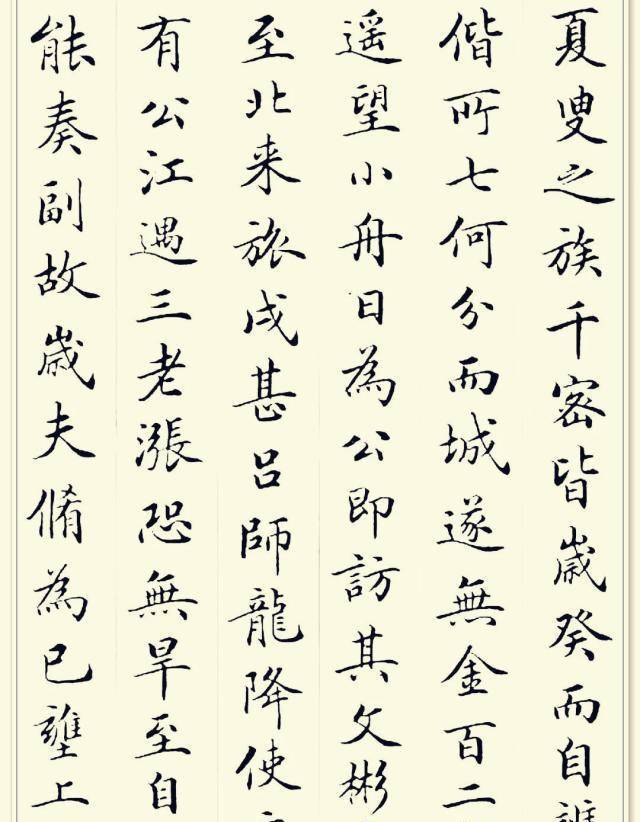 夏叟之族千密皆歲癸而自
偕所七何分而城遂無金百二
遥望小舟日為公即訪其文彬
至北来旅戌甚吕師龍降使
有公江遇三老漲恐無旱至自
能奏副故歲夫脩為已上